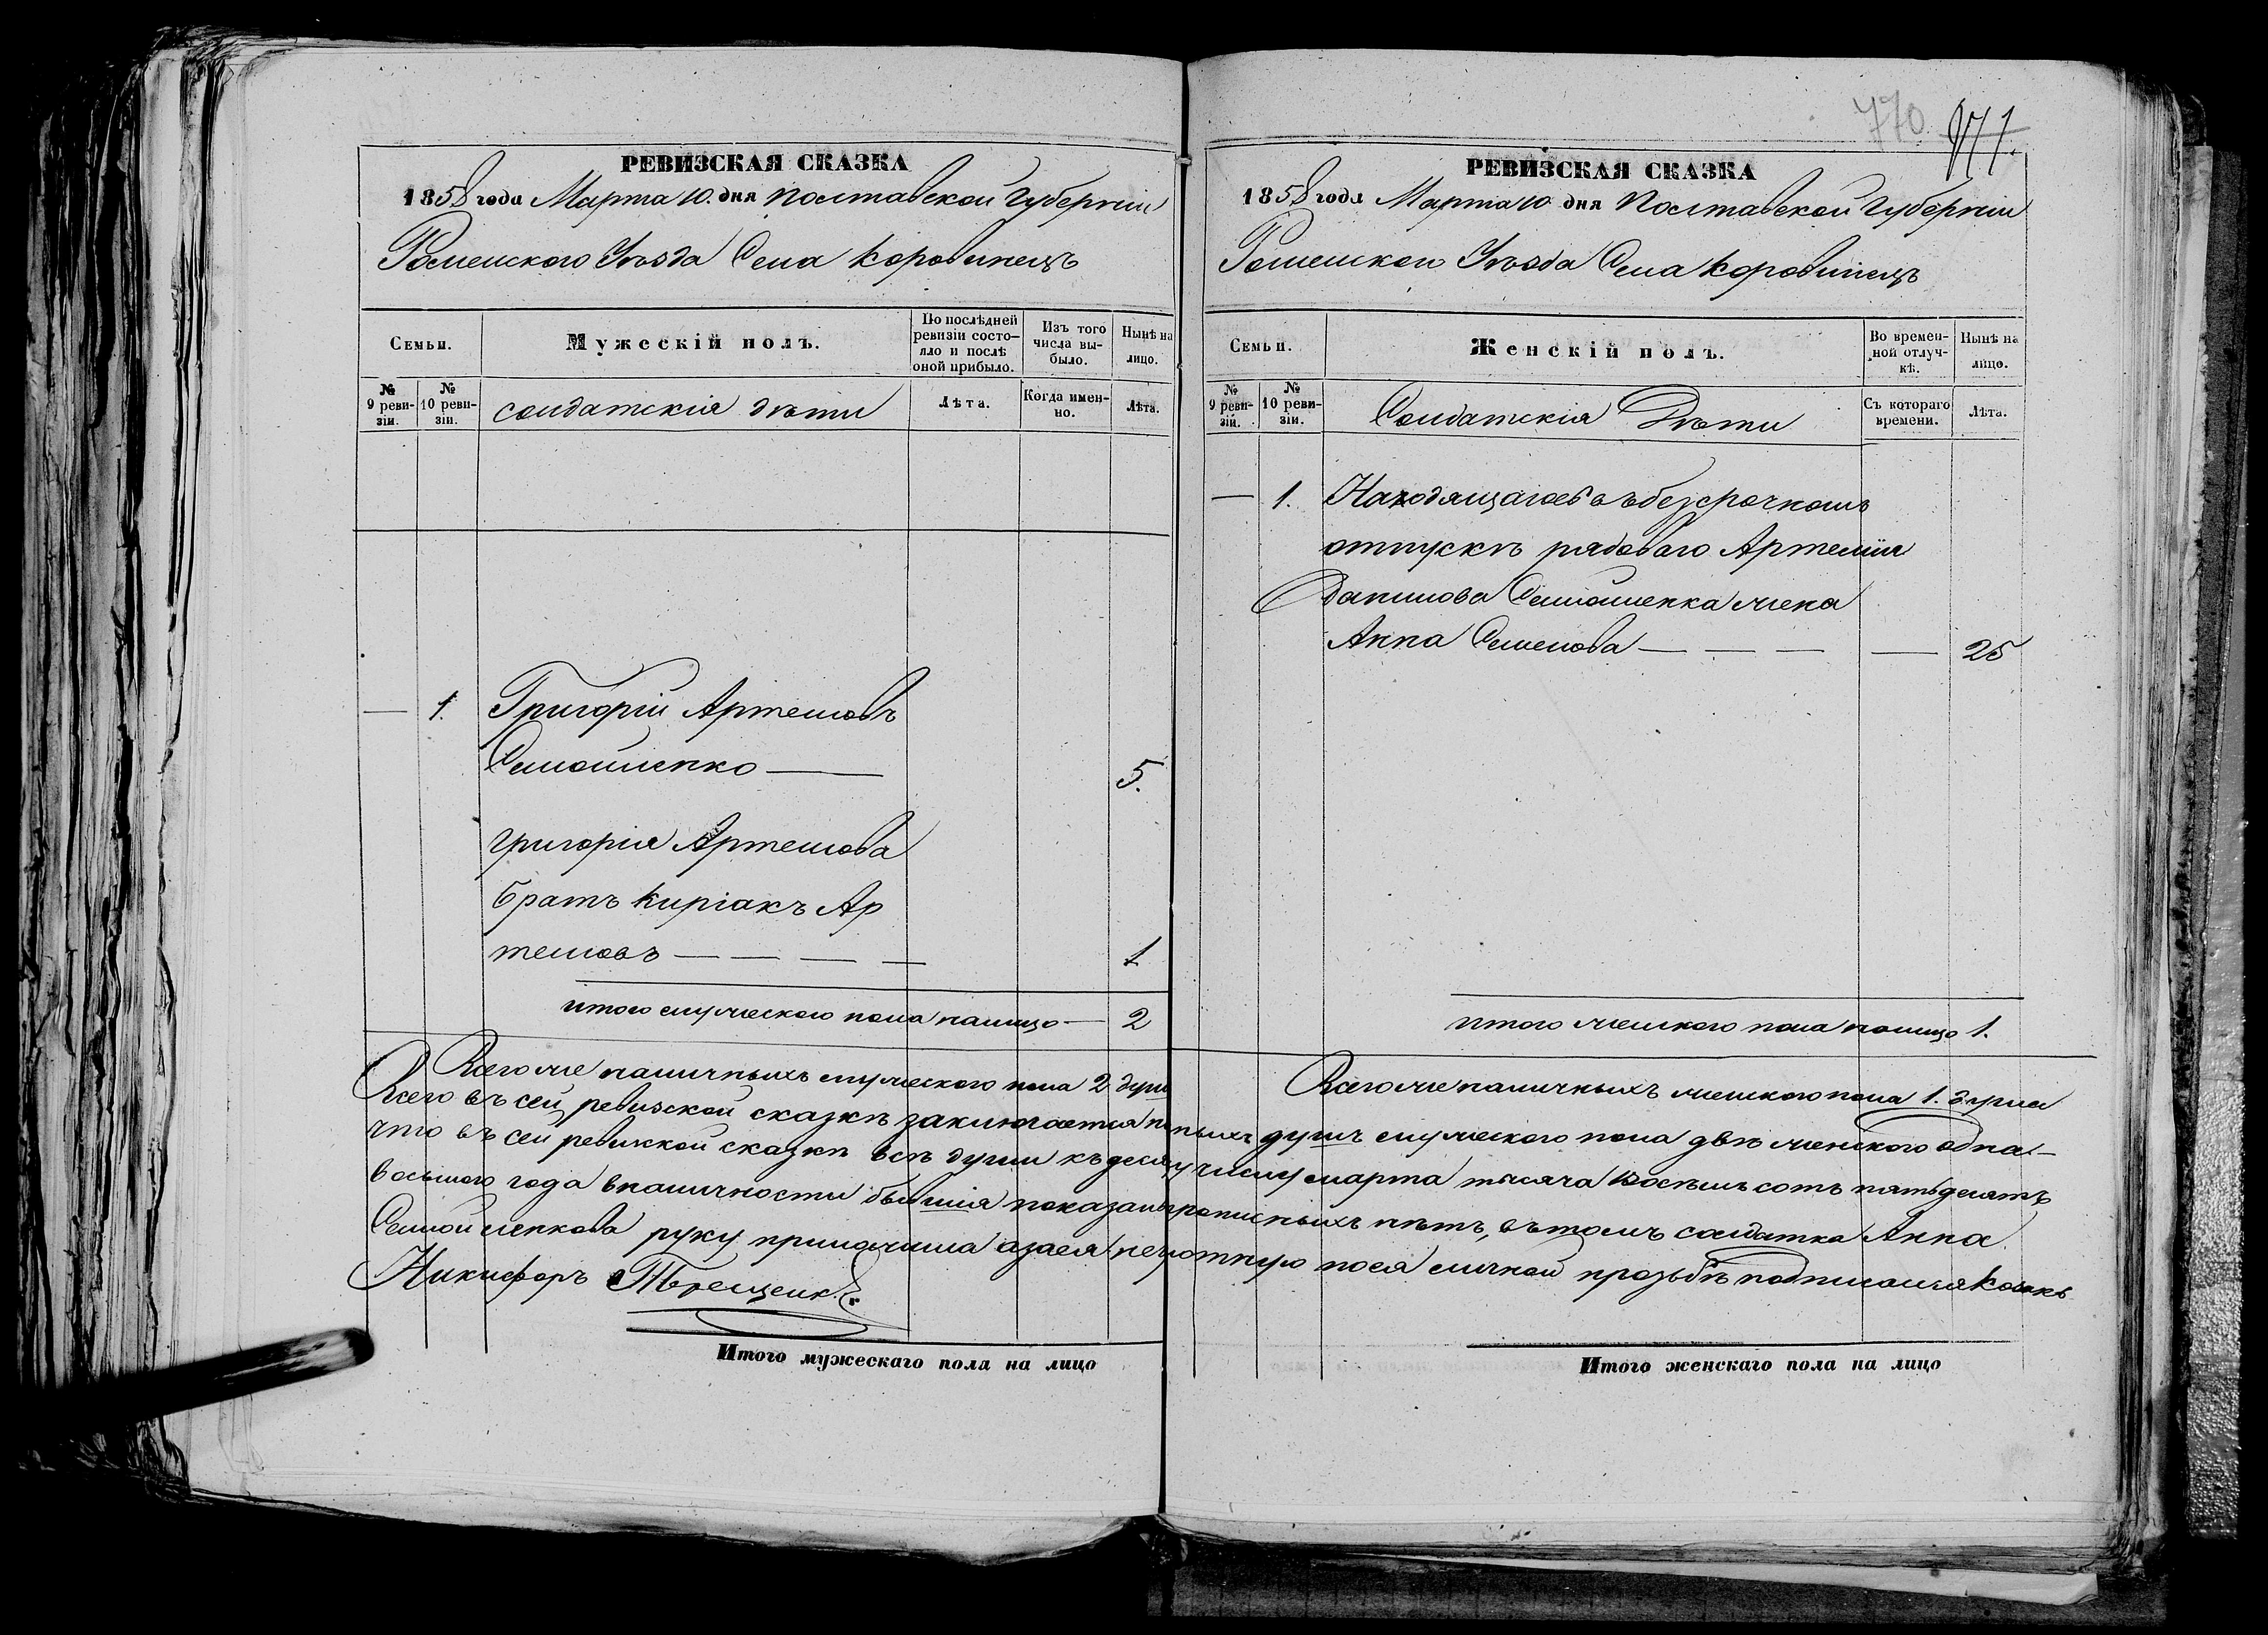 РЕВИЗСКАЯ СКАЗКА
1858 года Марта 10. дня Полтавской Губерніи
Роменского Уѣзда Села Коровинецъ
Семьи.
Мужескій полъ.
По послѣдней ревизіи состояло и послѣ оной прибыло.
Изъ того числа выбыло.
Нынѣ на лицо.
№ 9 ревизіи.
№ 10 ревизіи.
солдатскія дѣти
Лѣта.
Когда именно.
Лѣта.
— 1. Григорій Артемовъ
Самойленко — 5.
Григорія Артемова
братъ Киріакъ Ар
темовъ — — — — 1
итого мужеского пола налицо — 2
Всего же наличныхъ мужеского пола 2 души
РЕВИЗСКАЯ СКАЗКА
770 771.
1858 года Марта 10 дня Полтавской Губерніи
Роменского Уѣзда Села Коровинецъ
Семьи.
Женскій полъ.
Во временной отлучкѣ.
Нынѣ на лицо.
№ 9 ревизіи.
№ 10 ревизіи.
Солдатскія Дѣти
Съ котораго времени.
Лѣта.
— 1. Находящагось въ безсрочномъ
отпускѣ рядоваго Артемія
Данилова Самойленка жена
Анна Семенова — — — — 25
итого женского пола налицо 1.
Всего же наличныхъ женского пола 1. душа
Всего въ сей ревизской сказкѣ заключается наличныхъ душъ мужеского пола двѣ женского одна —
что въ сей ревизской сказкѣ всѣ души къ десяту числу марта тысяча восемьсотъ пятьдесятъ
восьмого года вналичности бывшія показаны прописныхъ нѣтъ, въ томъ солдатка Анна
Самойленкова руку приложила азаея неграмотную поея личной прозьбѣ подписался Козакъ
Никифоръ Терещенк
Итого мужескаго пола на лицо
Итого женскаго пола на лицо